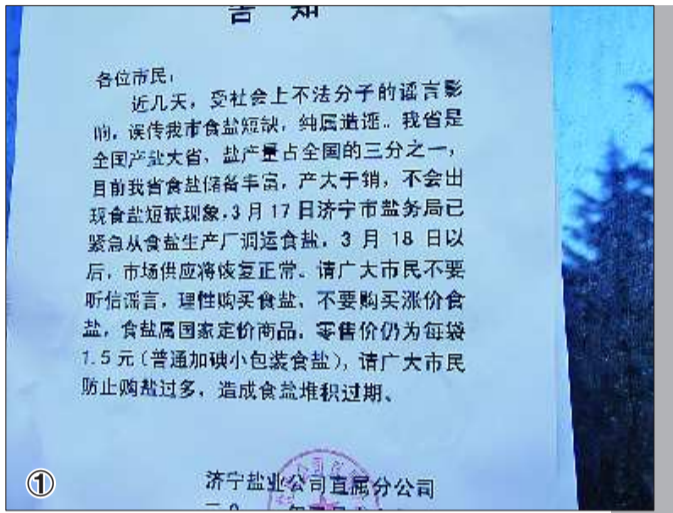 告 知
各位市民：
近几天，受社会上不法分子的谣言影
响，误传我市食盐短缺，纯属造谣。我省是
全国产盐大省，盐产量占全国的三分之一，
目前我省食盐储备丰富，产大于销，不会出
现食盐短缺现象。3月17日济宁市盐务局已
紧急从食盐生产厂调运食盐，3月18日以
后，市场供应将恢复正常。请广大市民不要
听信谣言，理性购买食盐、不要购买涨价食
盐，食盐属国家定价商品，零售价仍为每袋
1.5元(普通加碘小包装食盐)，请广大市民
防止购盐过多，造成食盐堆积过期、
济宁盐业公司直属分公司
①